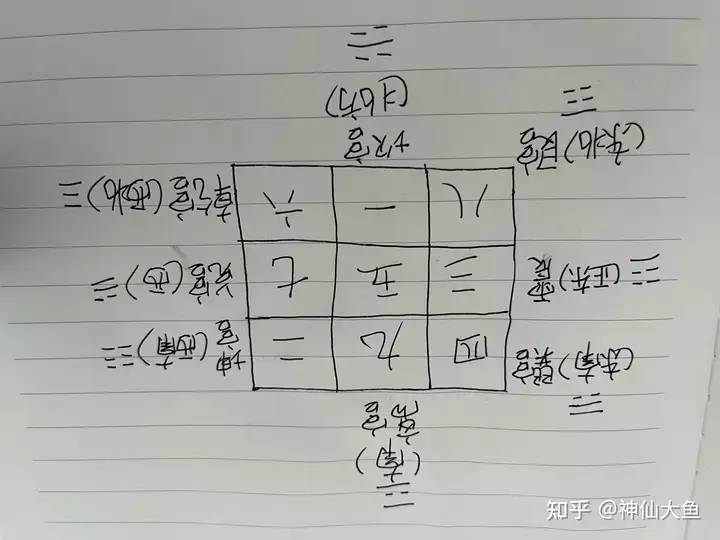 ☲
(南)
离宫
☴
(东南)巽宫
四 九 二
坤宫(西南)☷
☳(正东)震
三 五 七
兑宫(西)☱
(东北)艮宫
☶
八 一 六
乾宫(西北)☰
坎宫
(北方)
☵
知乎 @神仙大鱼